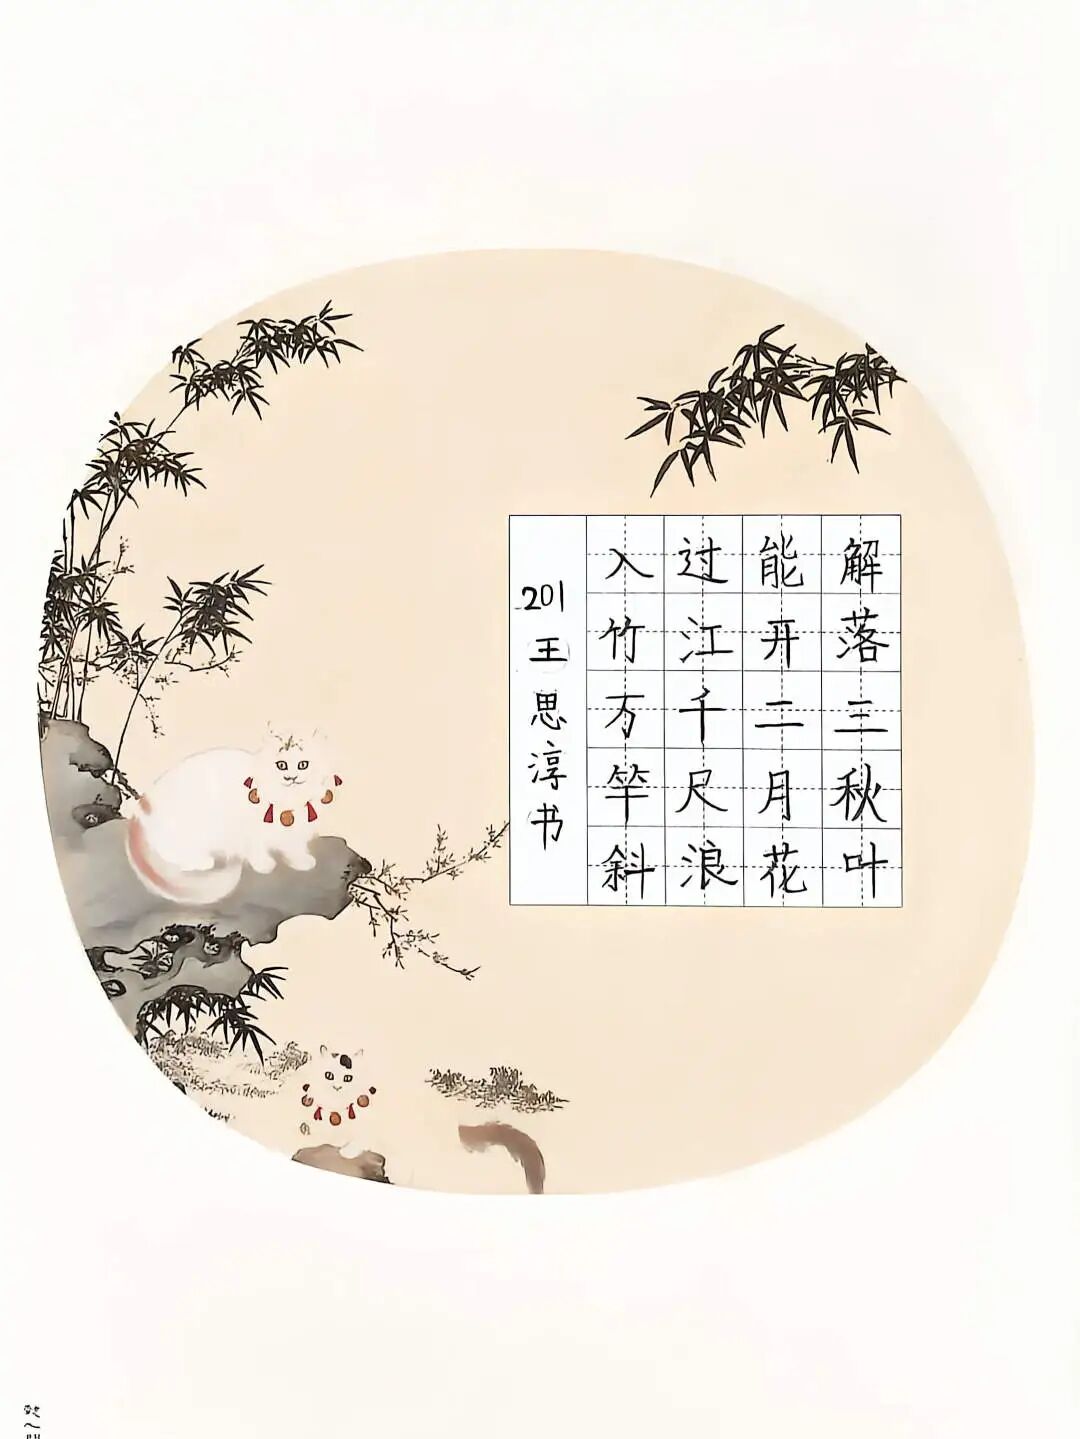 解落三秋叶
能开二月花
过江千尺浪
入竹万竿斜
201王思淳书